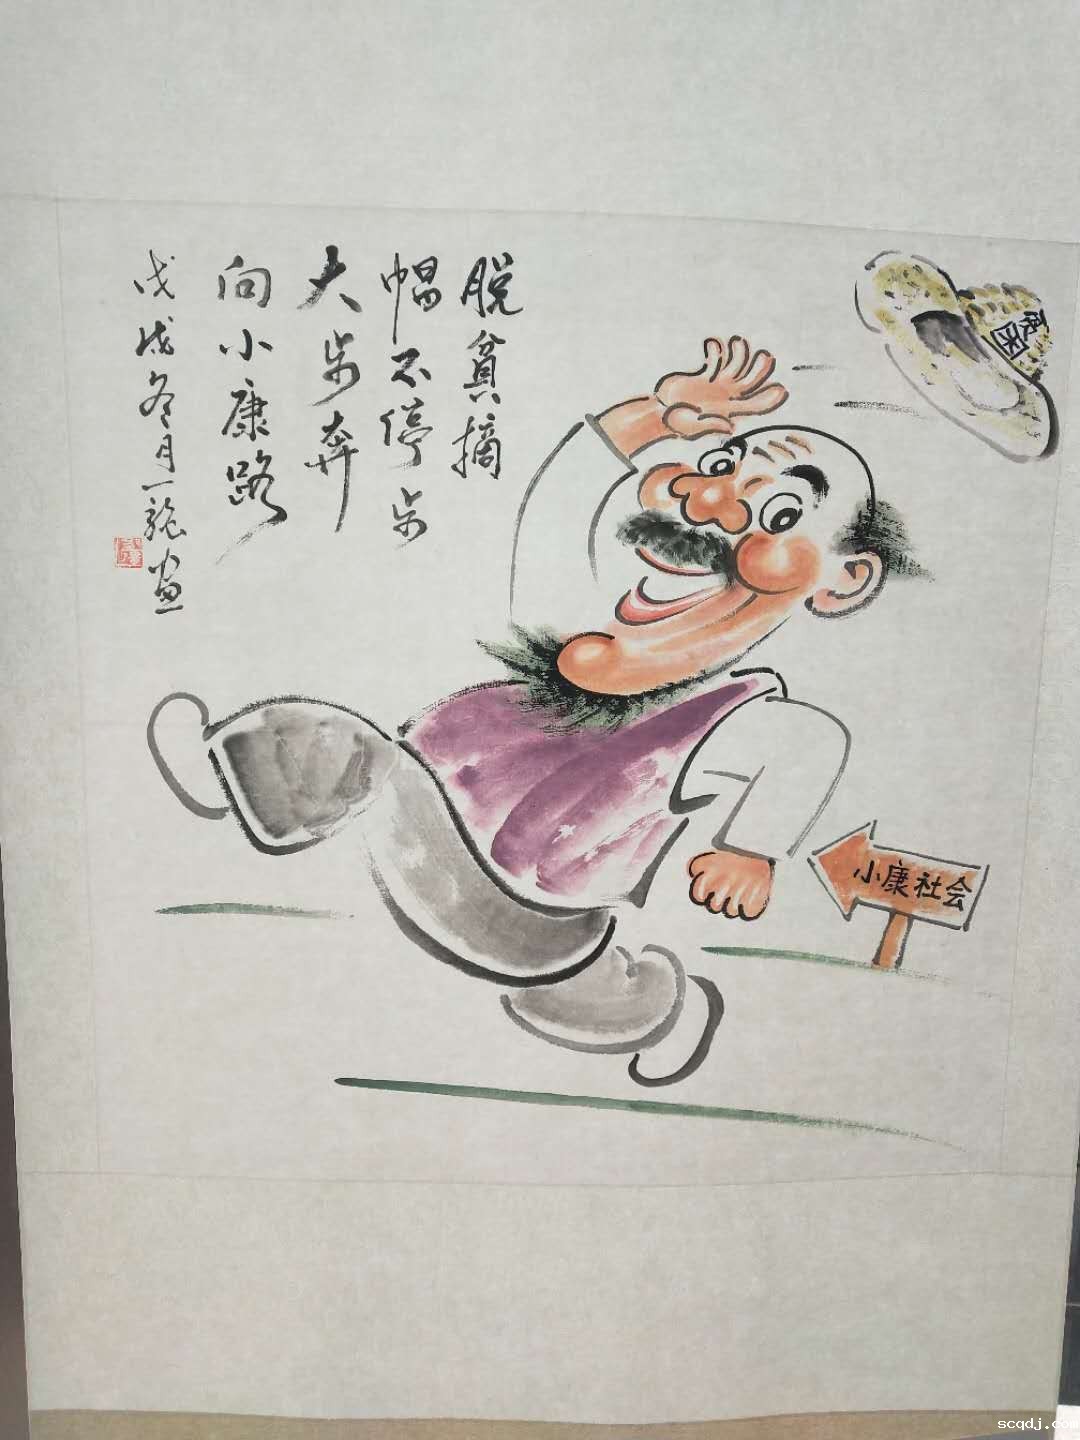 脱貧摘
帽不停步
大步奔
向小康路
戊戌冬月一龍画
贫困
小康社会
scqdj.com